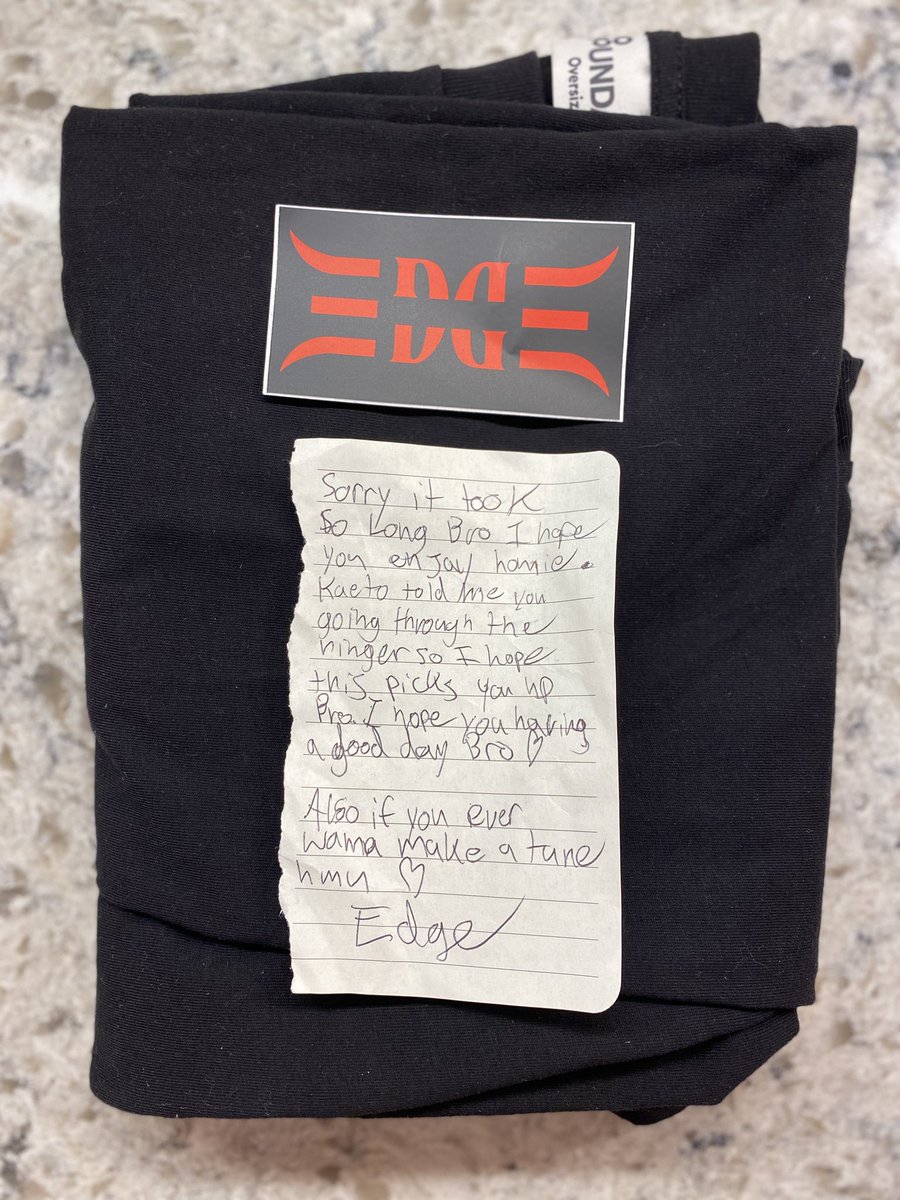 O
OUND
Oversiz
EDGE
Sorry it took
So Long Bro I hope
you enjoy homie.
Kaeto told me you
going through the
ringer so I hope
this picks you up
Bro. I hope you having
a good day Bro ♡
Also if you ever
wanna make a tune
hmu ♡
Edge